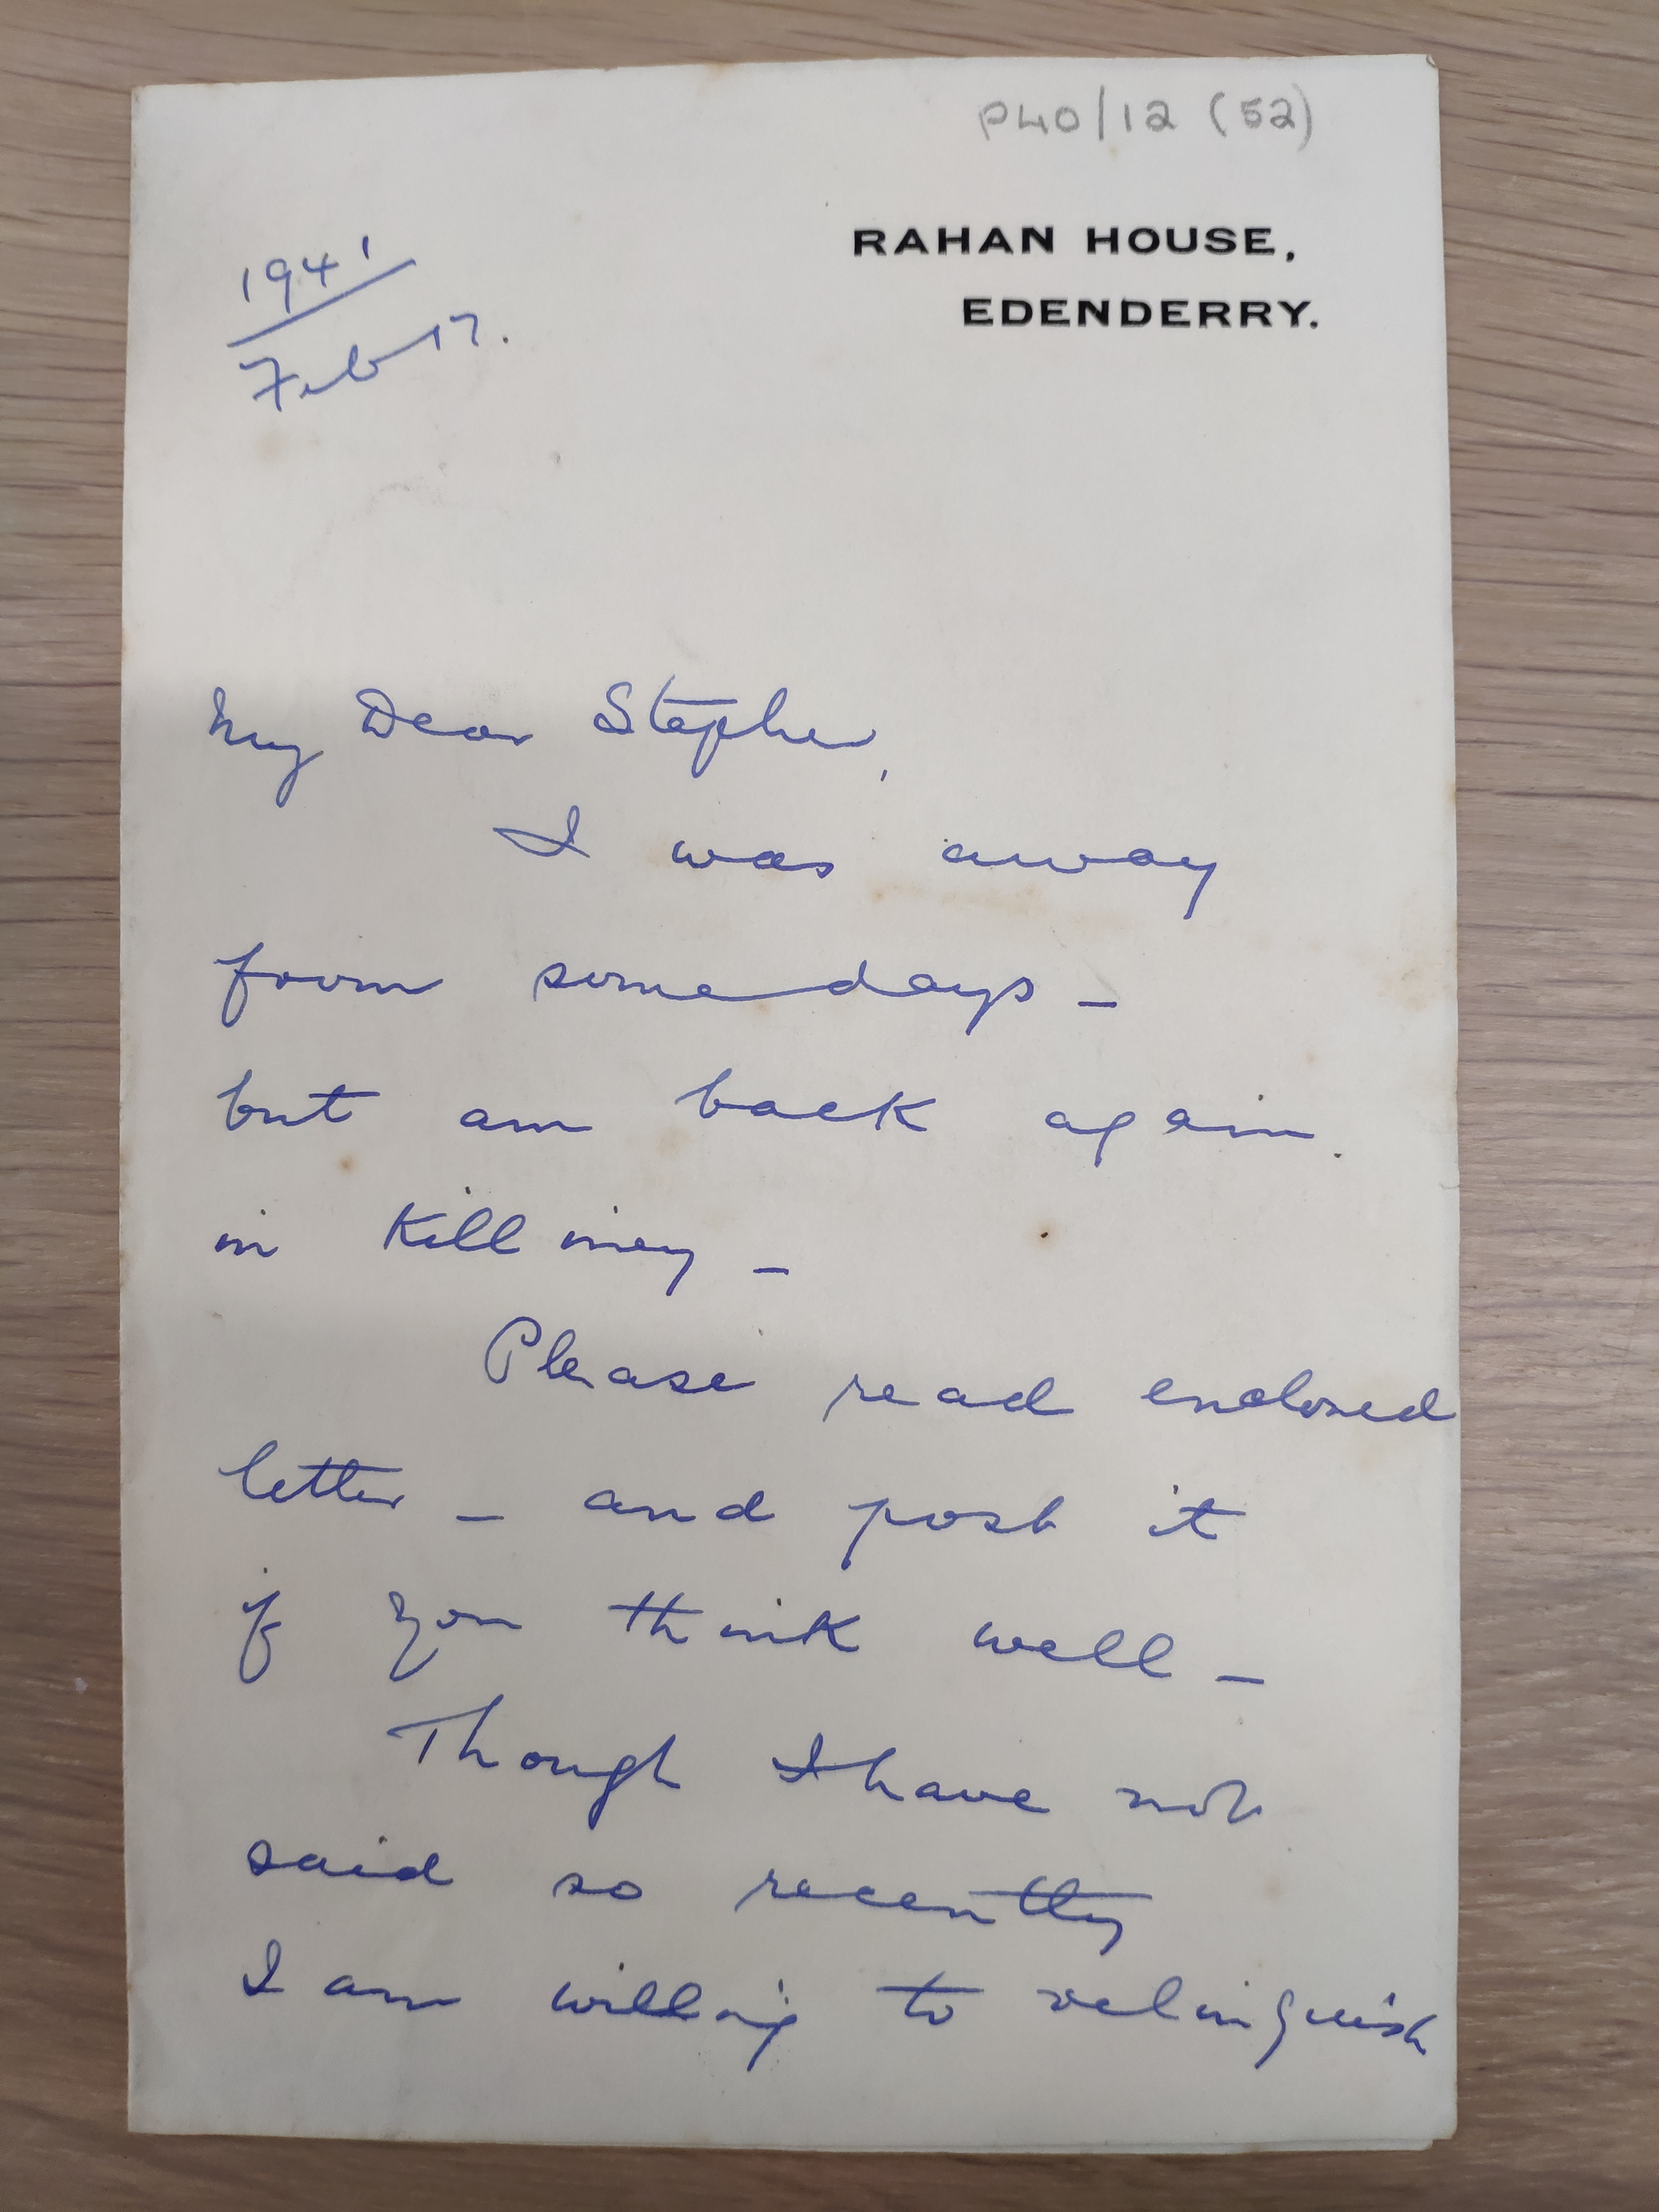 P40/12 (52)
RAHAN HOUSE,
EDENDERRY.
1941
Feb 17.
My Dear Stephen,
I was away
from some days –
but am back again.
in Killiney –
Please read enclosed
letter – and post it
if you think well –
Though I have not
said so recently
I am willing to relinquish